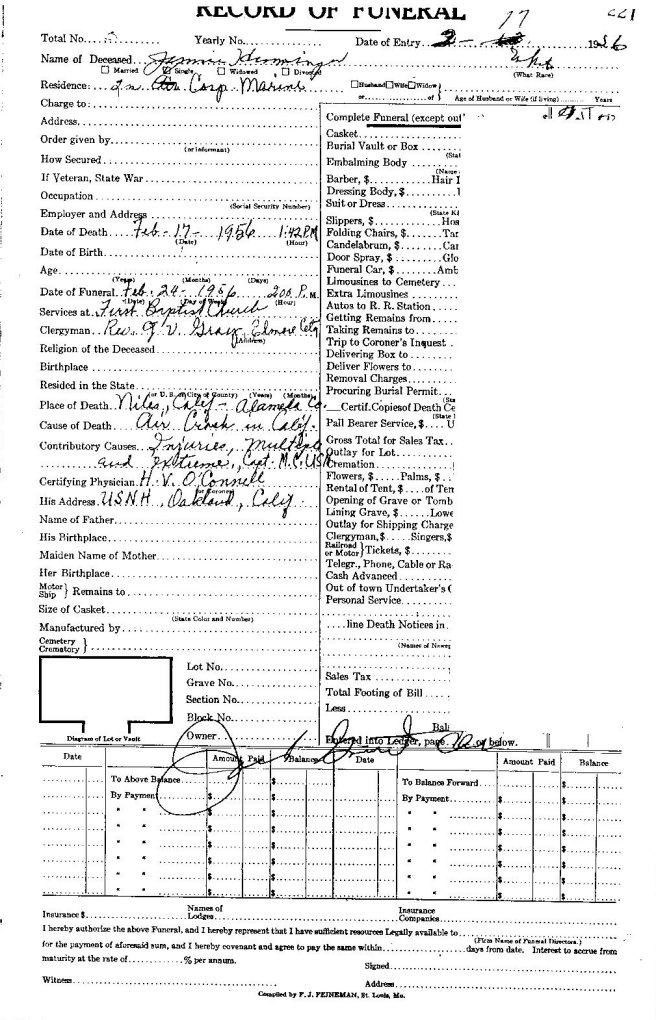 RECORD OF FUNERAL
17
221
Total No. Yearly No. Date of Entry 2- 1956
Name of Deceased
☐ Married ☑ Single ☐ Widowed ☐ Divorced (What Race)
Residence: In Air Corp. Marine ☐Husband☐Wife☐Widow
or of Age of Husband or Wife (if living) Years
Charge to:
Address
Order given by
(or informant)
How Secured
If Veteran, State War
Occupation
(Social Security Number)
Employer and Address
Date of Death Feb - 17 - 1956 1:42 P.M
(Date) (Hour)
Date of Birth
Age
(Years) (Months) (Days)
Date of Funeral Feb. 24 - 1956 2:00 P. M.
(Date) (Day of Week) (Hour)
Services at First Baptist Church
Clergyman Rev. J V. Gray, Elmore City
(Address)
Religion of the Deceased
Birthplace
Resided in the State
(or U. S. or City or County) (Years) (Months)
Place of Death Niles, Calif - Alameda Co
Cause of Death Air Crash in Calif.
Contributory Causes Injuries, Multiple
and Extreme, Capt. M.C. USN
Certifying Physician H. V. O'Connell
(or Coroner)
His Address USNH, Oakland, Calif
Name of Father
His Birthplace
Maiden Name of Mother
Her Birthplace
Motor Ship } Remains to
Size of Casket
(State Color and Number)
Manufactured by
Cemetery Crematory }
Lot No.
Grave No.
Section No.
Block No.
Owner
Diagram of Lot or Vault
Complete Funeral (except out
Casket
Burial Vault or Box
(Stat
Embalming Body
(Name
Barber, $ Hair
Dressing Body, $
Suit or Dress
(State Ki
Slippers, $ Hos
Folding Chairs, $ Tar
Candelabrum, $ Car
Door Spray, $ Glo
Funeral Car, $ Amb
Limousines to Cemetery
Extra Limousines
Autos to R. R. Station
Getting Remains from
Taking Remains to
Trip to Coroner's Inquest
Delivering Box to
Deliver Flowers to
Removal Charges
Procuring Burial Permit
(Sta
Certif. Copies of Death Ce
(State
Pall Bearer Service, $ U
Gross Total for Sales Tax
Outlay for Lot
Cremation
Flowers, $ Palms, $
Rental of Tent, $ of Ten
Opening of Grave or Tomb
Lining Grave, $ Lowe
Outlay for Shipping Charge
Clergyman, $ Singers, $
Railroad or Motor } Tickets, $
Telegr., Phone, Cable or Ra
Cash Advanced
Out of town Undertaker's (
Personal Service
line Death Notices in
(Names of Newsp
Sales Tax
Total Footing of Bill
Less
Bal
Entered into Ledger, page or below.
Date Amount Paid Balance Date Amount Paid Balance
To Above Balance $ To Balance Forward $
By Payment $ $ By Payment $ $
" " $ $ " " $ $
" " $ $ " " $ $
" " $ $ " " $ $
" " $ $ " " $ $
" " $ $ " " $ $
" " $ $ " " $ $
Insurance $ Names of Lodges Insurance Companies
I hereby authorize the above Funeral, and I hereby represent that I have sufficient resources Legally available to
(Firm Name of Funeral Directors.)
for the payment of aforesaid sum, and I hereby covenant and agree to pay the same within days from date. Interest to accrue from
maturity at the rate of % per annum. Signed
Witness Address
Compiled by F. J. FEINEMAN, St. Louis, Mo.